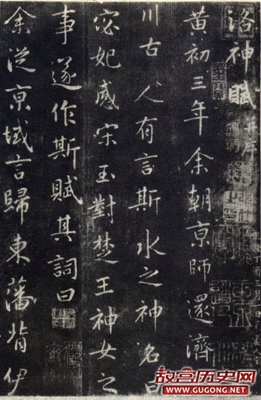 洛神賦 并序
黄初三年余朝亰師還濟
川古人有言斯水之神名曰
宓妃感宋玉對楚王神女之
事遂作斯賦其詞曰
余從亰域言歸東藩背伊
故宫历史网
www.GUGONG.net